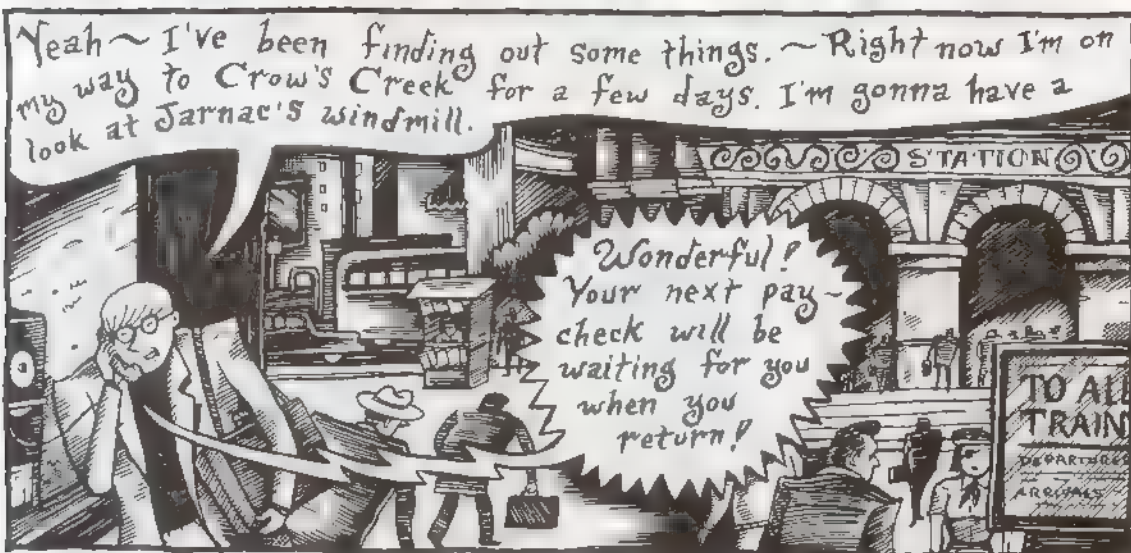 Yeah ~ I've been finding out some things. ~ Right now I'm on
my way to Crow's Creek for a few days. I'm gonna have a
look at Jarnac's windmill.
STATION
Wonderful!
Your next pay-
check will be
waiting for you
when you
return!
TO ALL
TRAIN
DEPARTURES
ARRIVALS